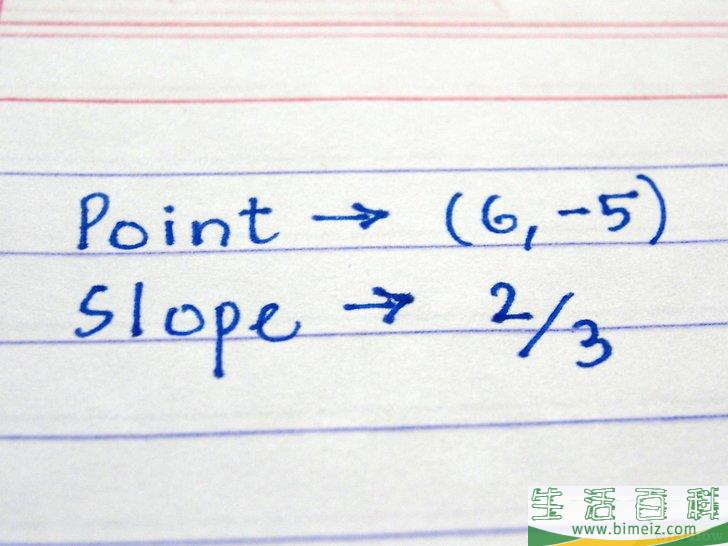 Point → (6, -5)
Slope → 2/3
生活百科
www.bimeiz.com